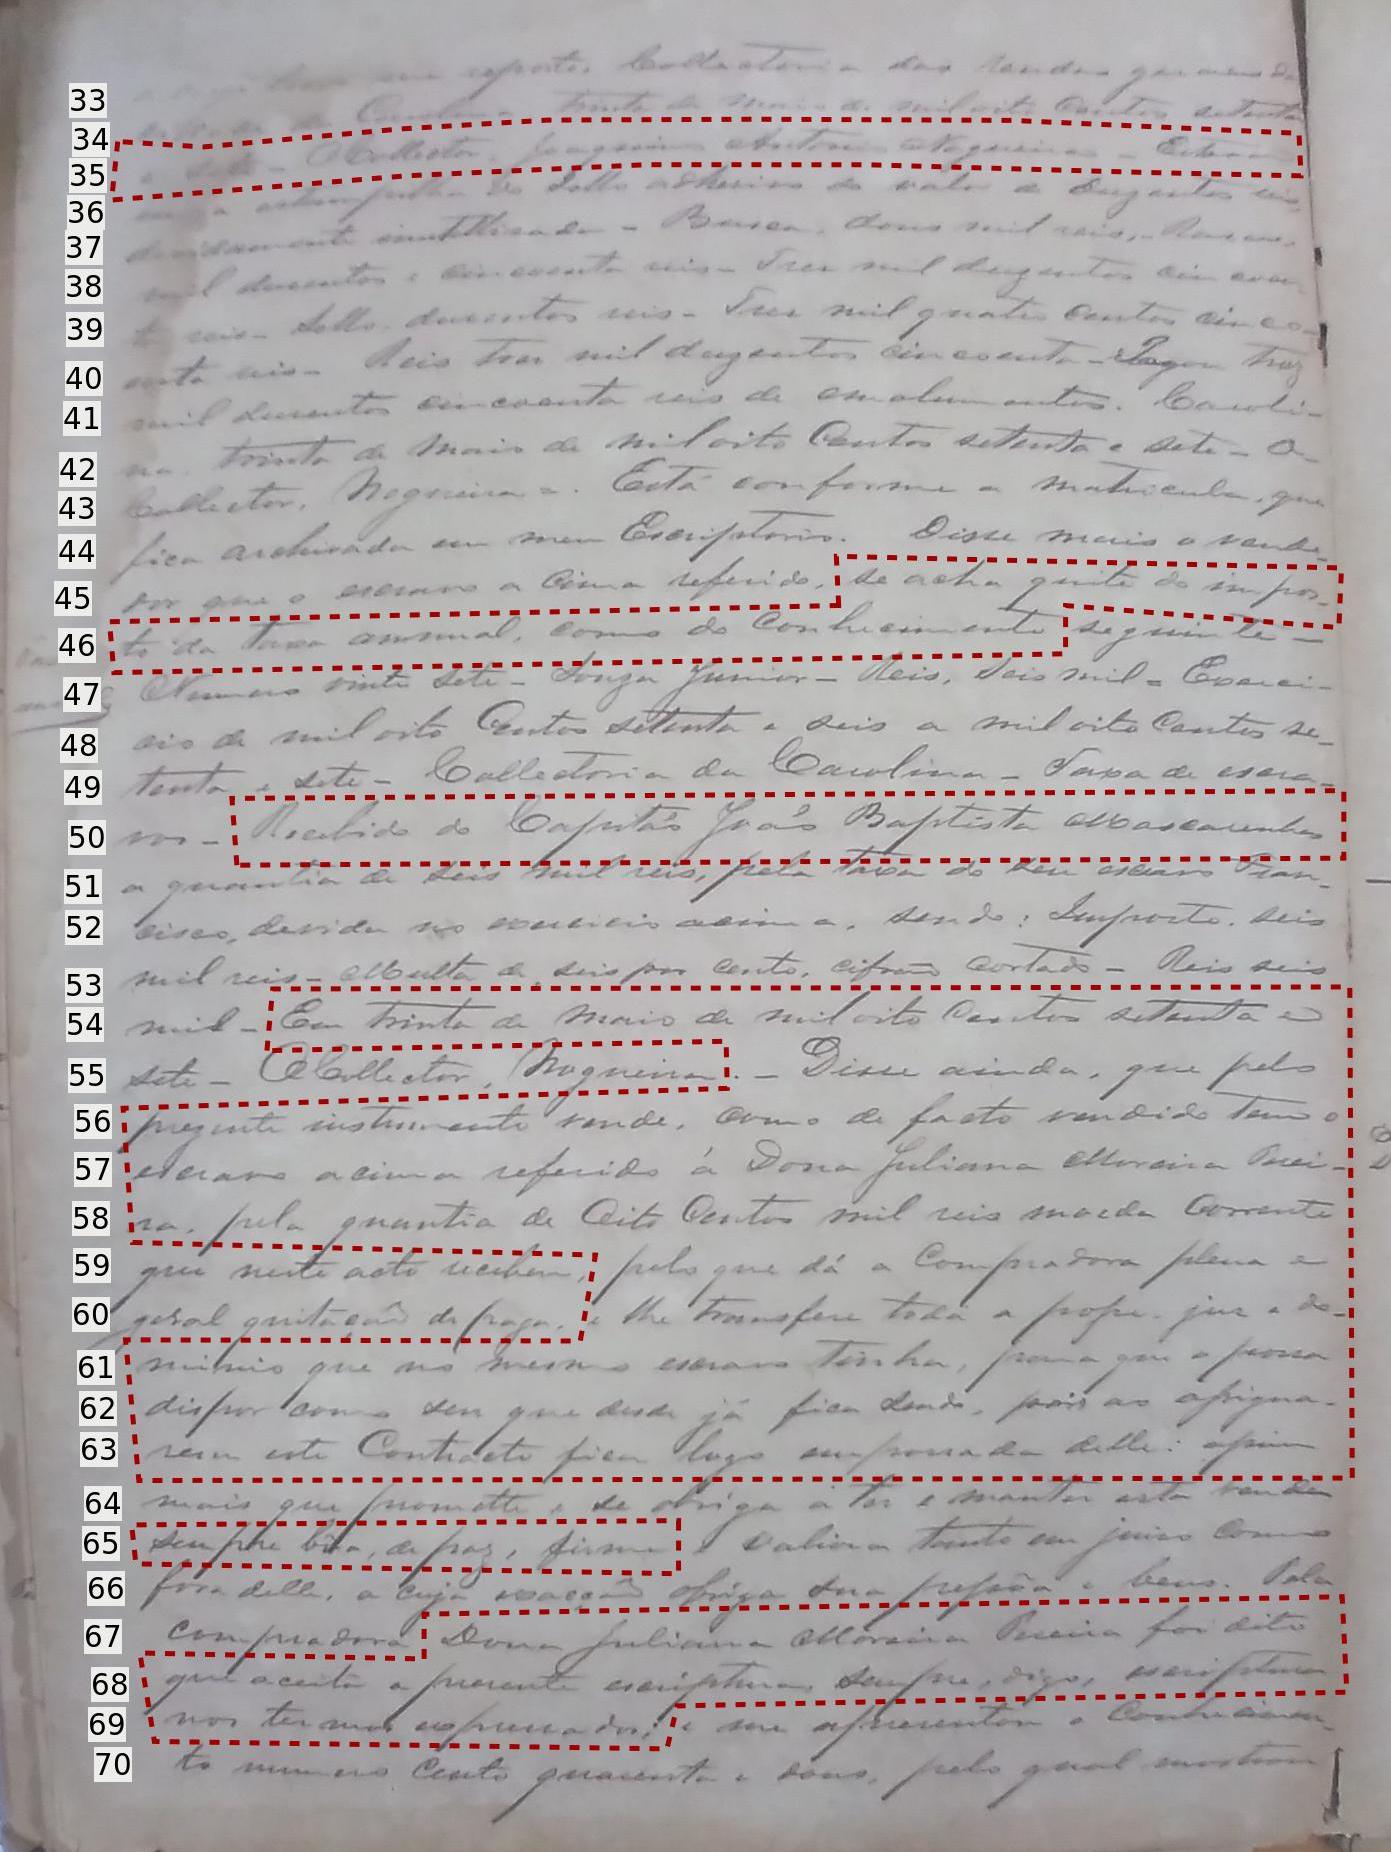 33
34
35
36
37
38
39
40
41
42
43
44
45
46
47
48
49
50
51
52
53
54
55
56
57
58
59
60
61
62
63
64
65
66
67
68
69
70
reporto. Collectoria das rendas geraes da
da Carolina trinta de Maio de mil oito Centos setenta
e sete - O Collector, Joaquim Antonio Nogueira - Estava
sello adhesivo do valor de duzentos reis,
devidamente inutilisada - Busca, dous mil reis, - Rasa
mil duzentos e cincoenta reis - Tres mil duzentos cincoen
ta reis - Sello, duzentos reis - Tres mil quatro Centos cinco-
enta reis - Reis tres mil duzentos cincoenta - Pagou trez
mil duzentos cincoenta reis de emolumentos. Caroli-
na trinta de Maio de mil oito Centos setenta e sete - O
Collector, Nogueira =. Está conforme a matricula, que
fica archivada em meu Escriptorio. Disse mais o vende-
dor que o escravo a cima referido, se acha quite do impos-
to da taxa annual, como do Conhecimento seguinte -
Numero vinte sete - Souza Junior - Reis, Seis mil = Exerci-
cio de mil oito Centos setenta e seis a mil oito Centos se-
tenta e sete - Collectoria da Carolina - Taxa de escra-
vos - Recebido do Capitão João Baptista Mascarenhas
a quantia de seis mil reis, pela taxa do seu escravo Fran-
cisco, devida no exercicio acima, sendo: Imposto. seis
mil reis - Multa de seis por cento, cifrão cortado - Reis seis
mil - Em trinta de Maio de mil oito Centos setenta e
sete - O Collector, Nogueira. - Disse ainda, que pelo
prezente instrumento vende, como de facto vendido tem o
escravo acima referido á Dona Juliana Moreira Perei-
ra, pela quantia de Oito Centos mil reis moeda Corrente
que neste acto recebeu, pelo que dá a Compradora plena e
geral quitação de paga, e lhe transfere toda a jus e do-
minio que no mesmo escravo tinha, para que o possa
dispor como seu que desde já fica sendo, pois ao assigna-
rem este Contracto fica logo empossada delle: assim
mais que promette e se obriga a ter e manter esta venda
sempre bôa, de paz, firme e valiosa tanto em juizo Como
fora delle, a cuja obriga sua pessôa e bens. Pela
compradora Dona Juliana Moreira Pereira foi dito
que aceita a presente escriptura, sempre, digo, escriptura
nos termos expressados; e me apresentou o Conhecimen-
to numero Cento quarenta e dous, pelo qual mostrou